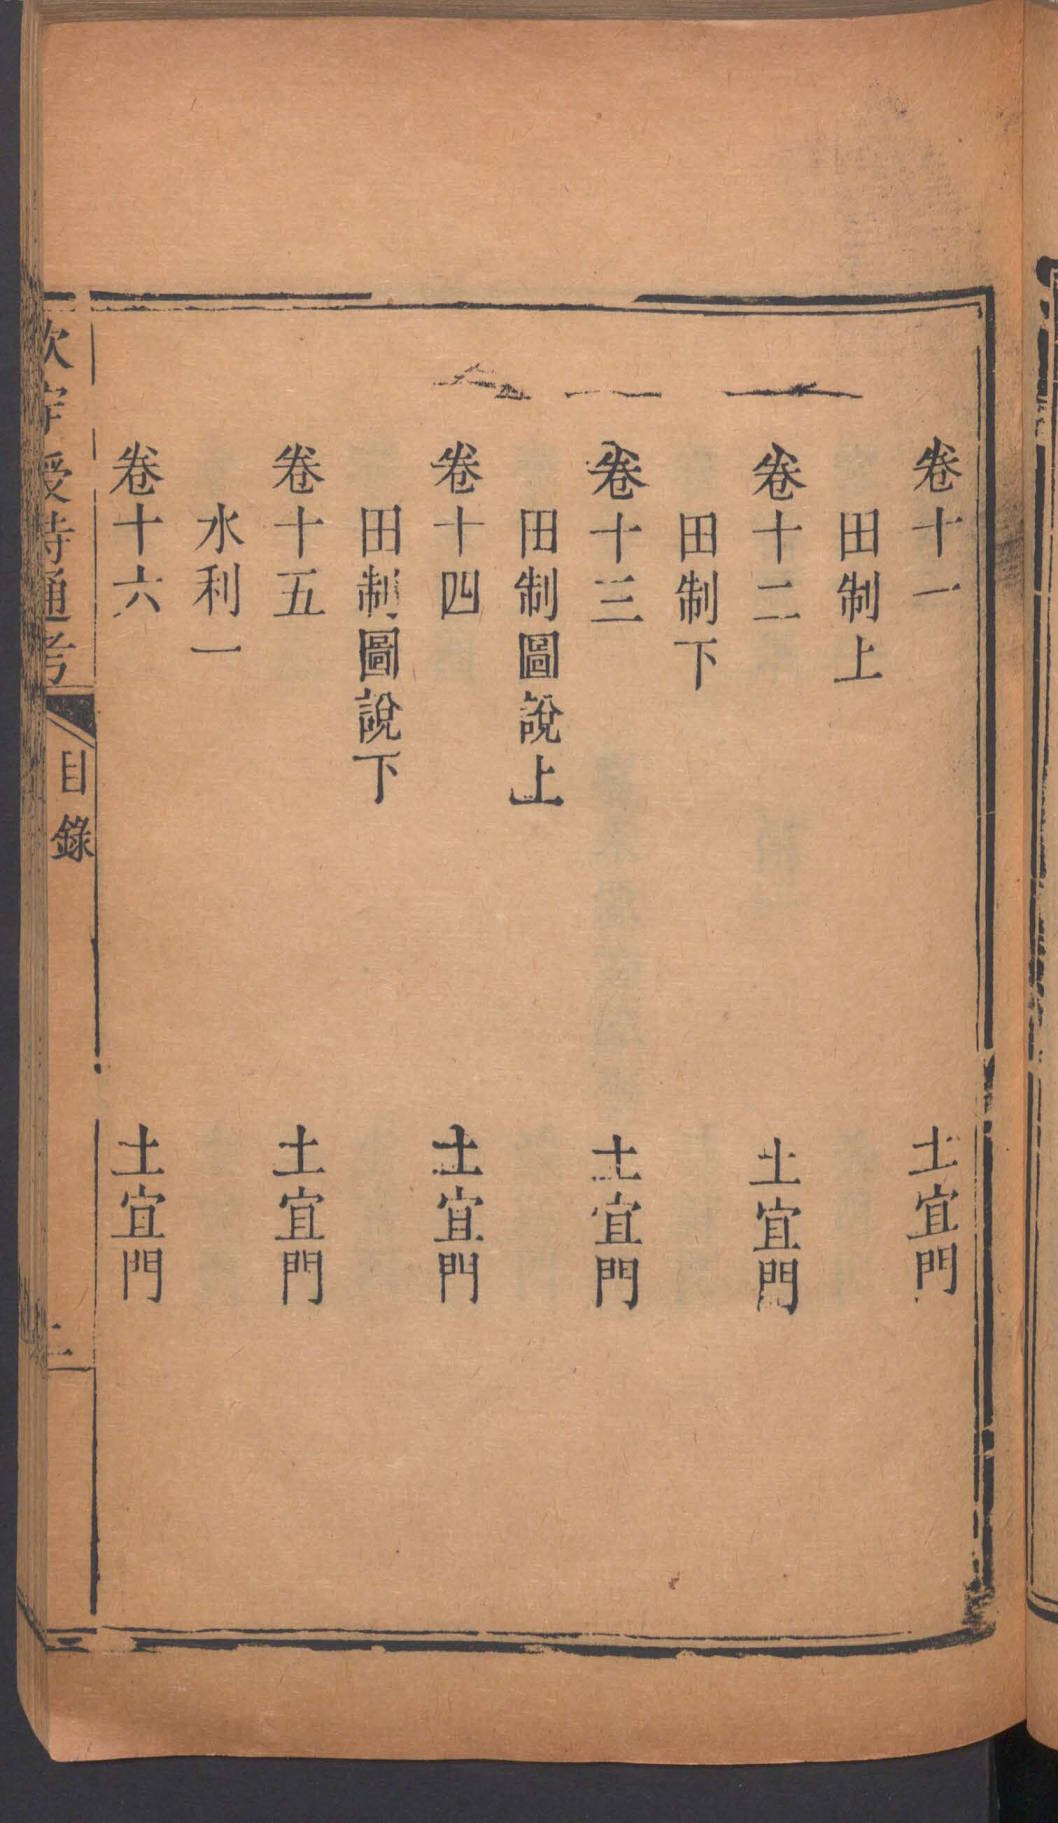 卷十一 土宜門
田制上
卷十二 土宜門
田制下
卷十三 土宜門
田制圖說上
卷十四 土宜門
田制圖說下
卷十五 土宜門
水利一
卷十六 土宜門
欽定授時通考 目錄